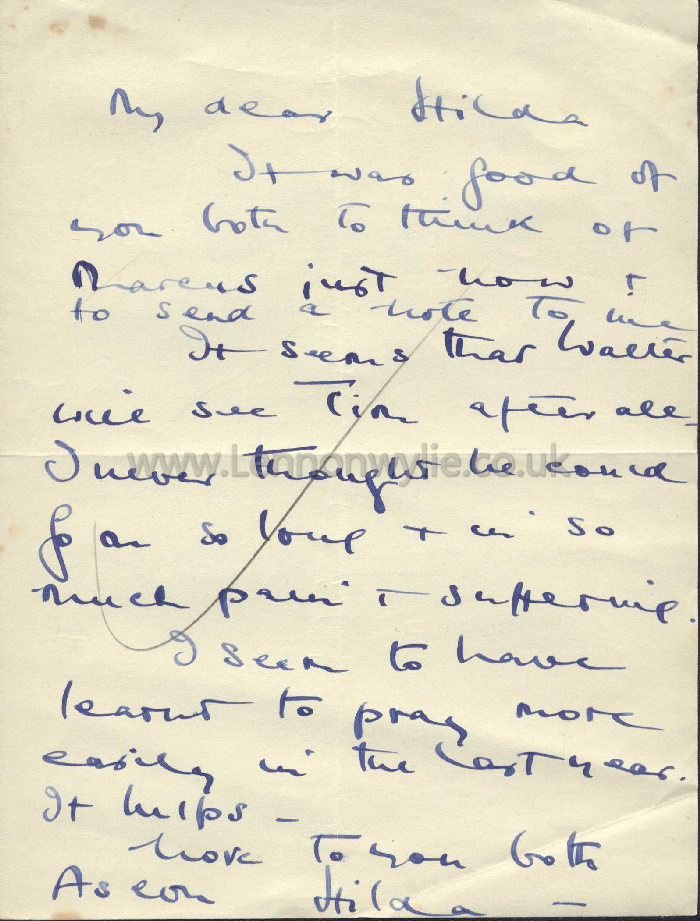 My dear Hilda
It was good of
you both to think of
Marcus just now +
to send a note to me
It seems that Walter
will see Tim after all -
www.Lennonwylie.co.uk
I never thought he could
go on so long + in so
much pain + suffering.
I seem to have
learnt to pray more
easily in the last year.
It helps -
Love to you both
As ever Hilda -